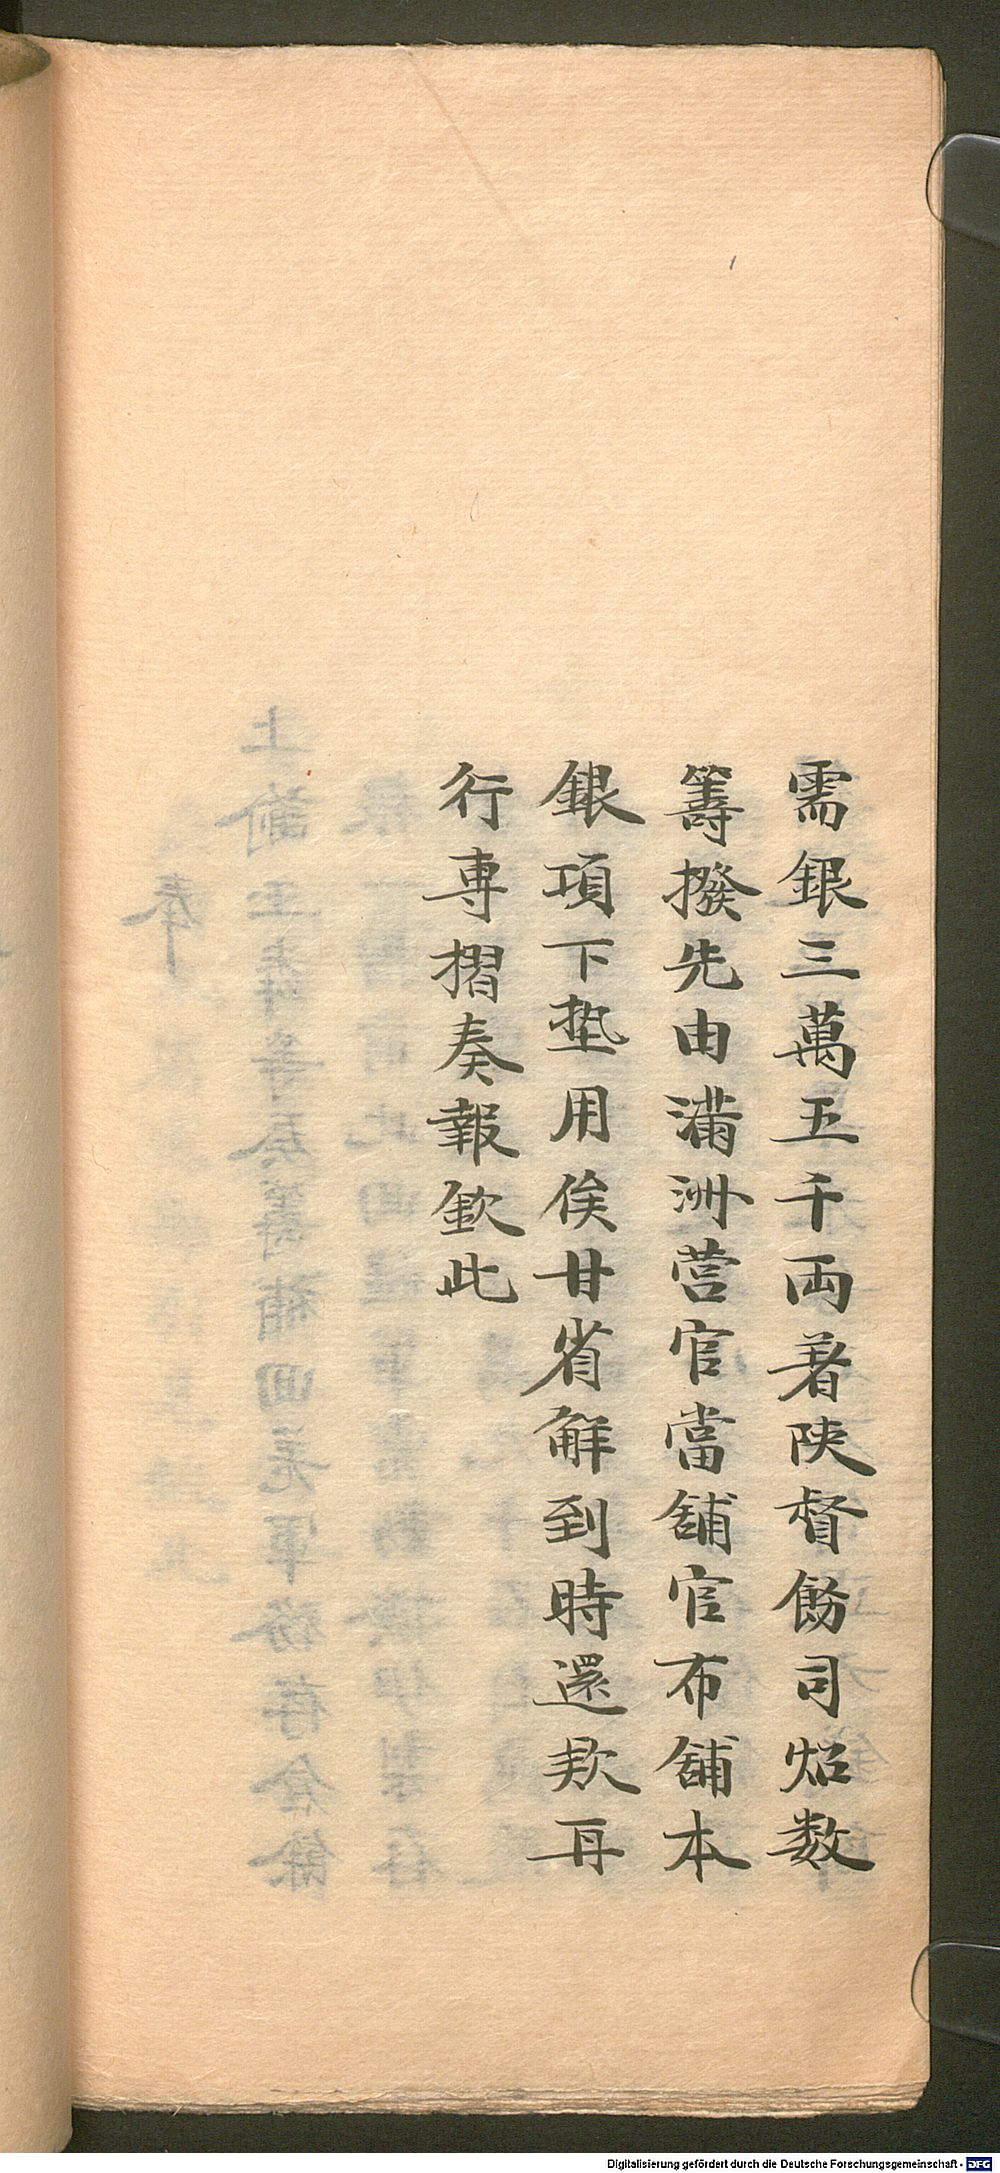 需銀三萬五千両著陕督飭司炤数
籌撥先由滿洲营官當舖官布舖本
銀項下墊用俟甘省解到時還欵再
行專摺奏報欽此
Digitalisierung gefördert durch die Deutsche Forschungsgemeinschaft - DFG